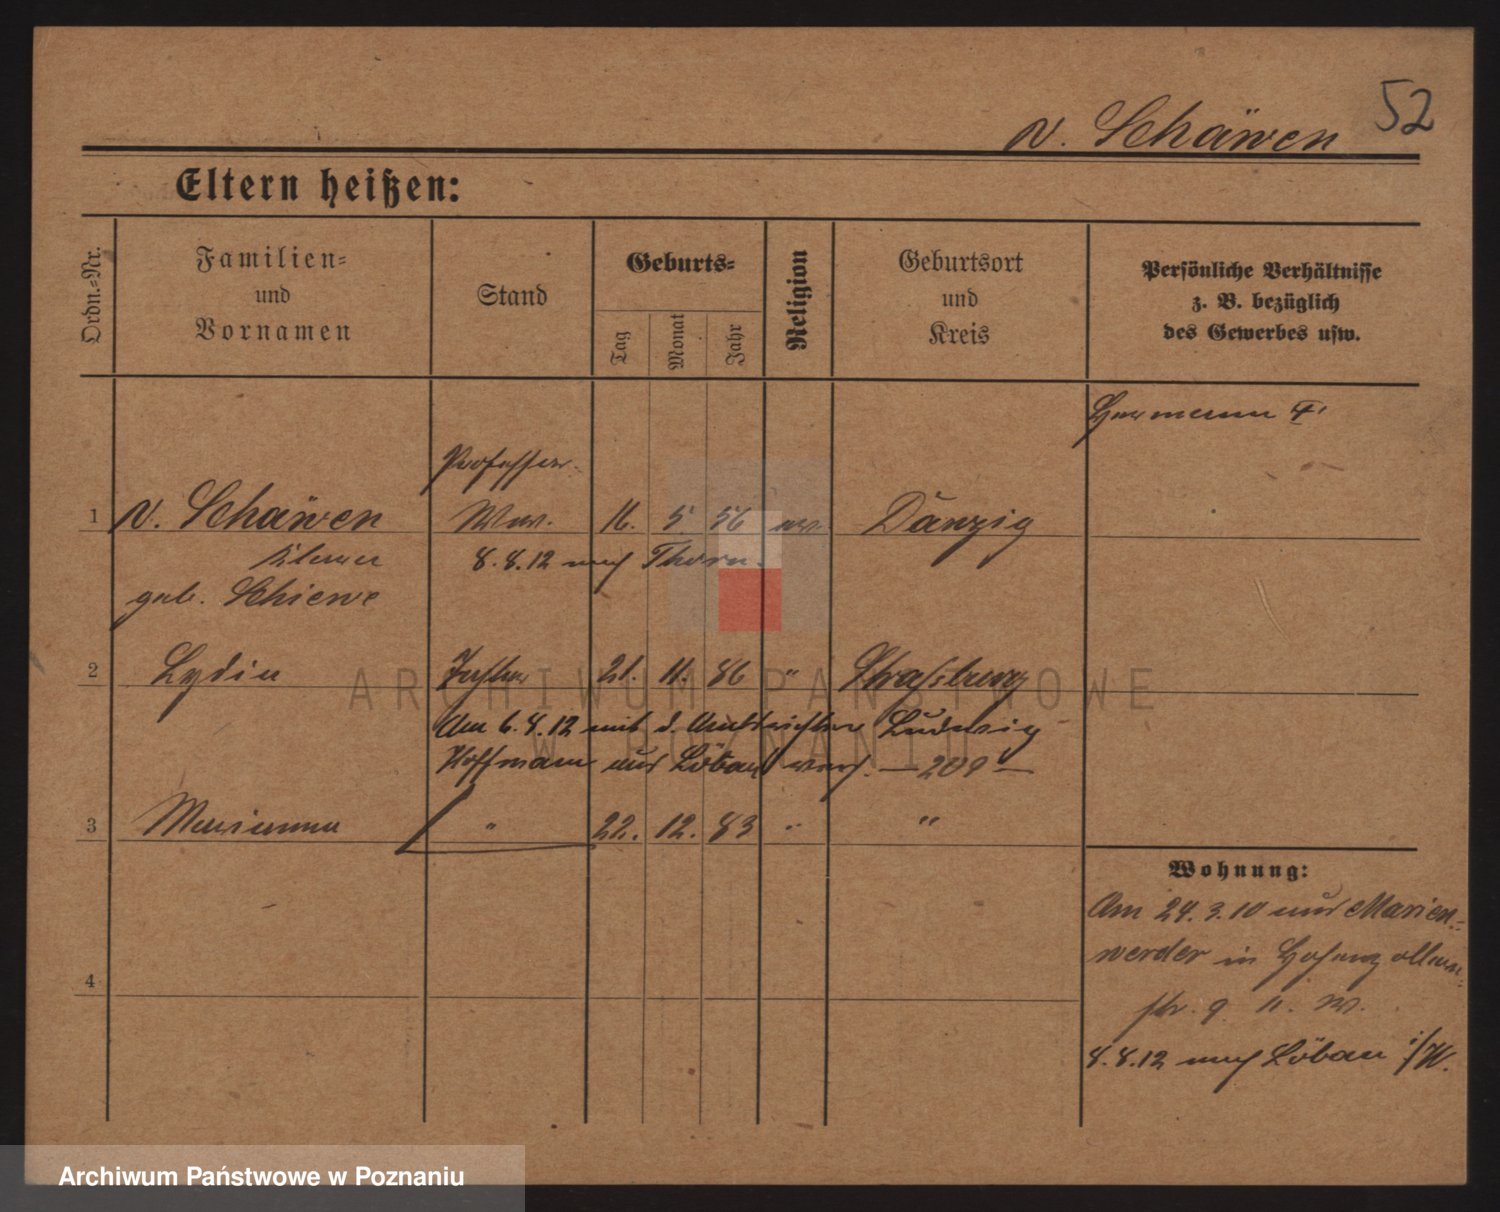 52
v. Schäwen
Eltern heißen:
Ordn.-Nr.
Familien-
und
Vornamen
Stand
Geburts-
Tag
Monat
Jahr
Religion
Geburtsort
und
Kreis
Persönliche Verhältnisse
z. B. bezüglich
des Gewerbes usw.
Hermann
Professor
1 v. Schäwen Ww. 16. 5 56 ev. Danzig
8.8.12 nach Thorn.
geb. Schiewe
2 Lydia Tochter 21. 11. 86 " Straßburg
Am 6.8.12 mit d. Amtsrichter Ludwig
Hoffmann aus Löbau verh. — 209 —
3 Marianna " 22. 12. 83 " "
Wohnung:
Am 24.3.10 aus Marien-
werder in Hohenzollern-
str. 9 II. W.
4
8.8.12 nach Löbau i/W.
ARCHIWUM PAŃSTWOWE
W POZNANIU
Archiwum Państwowe w Poznaniu